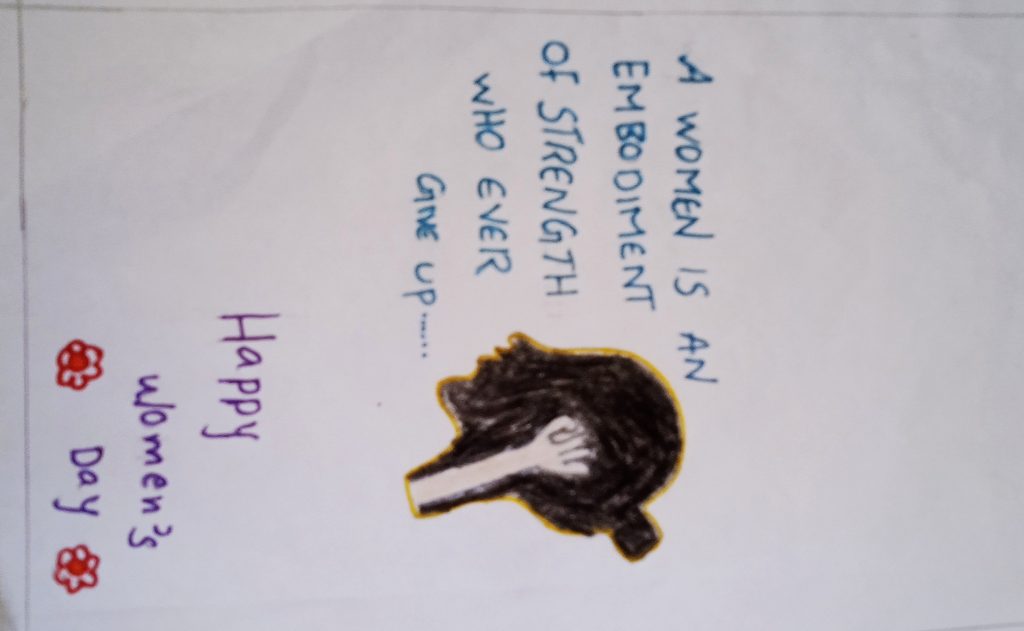 A WOMEN IS AN
EMBODIMENT
OF STRENGTH
WHO EVER
GIVE UP......
Happy
Women's
Day